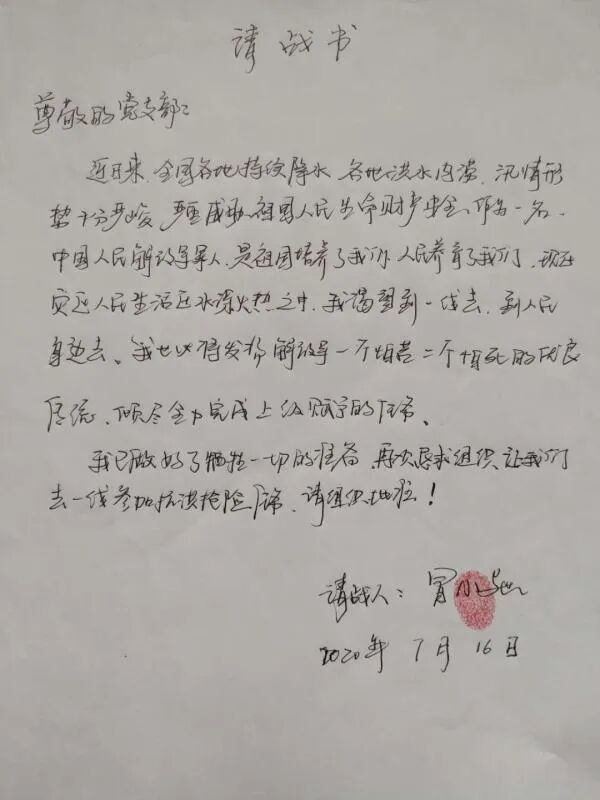 请战书
尊敬的党支部：
近日来，全国各地持续降水，各地洪水内涝，汛情形
势十分严峻，严重威胁祖国人民生命财产安全。作为一名
中国人民解放军军人，是祖国培养了我们，人民养育了我们，现在
灾区人民生活在水深火热之中，我渴望到一线去，到人民
身边去。我也必将发扬解放军一不怕苦二不怕死的优良
传统，倾尽全力完成上级赋予的任务。
我已做好了牺牲一切的准备，再次恳求组织让我们
去一线参加抗洪抢险任务，请组织批准！
请战人：
2020年7月16日